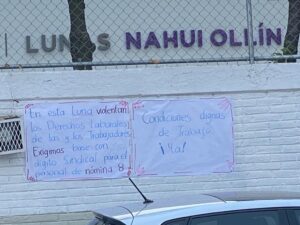 | LUNAS NAHUI OLLÍN
En esta Luna violentan
los Derechos Laborales
de las y los Trabajadores
Exigimos base con
digito Sindical para el
personal de nómina 8
Condiciones dignas
de Trabajo
¡Ya!